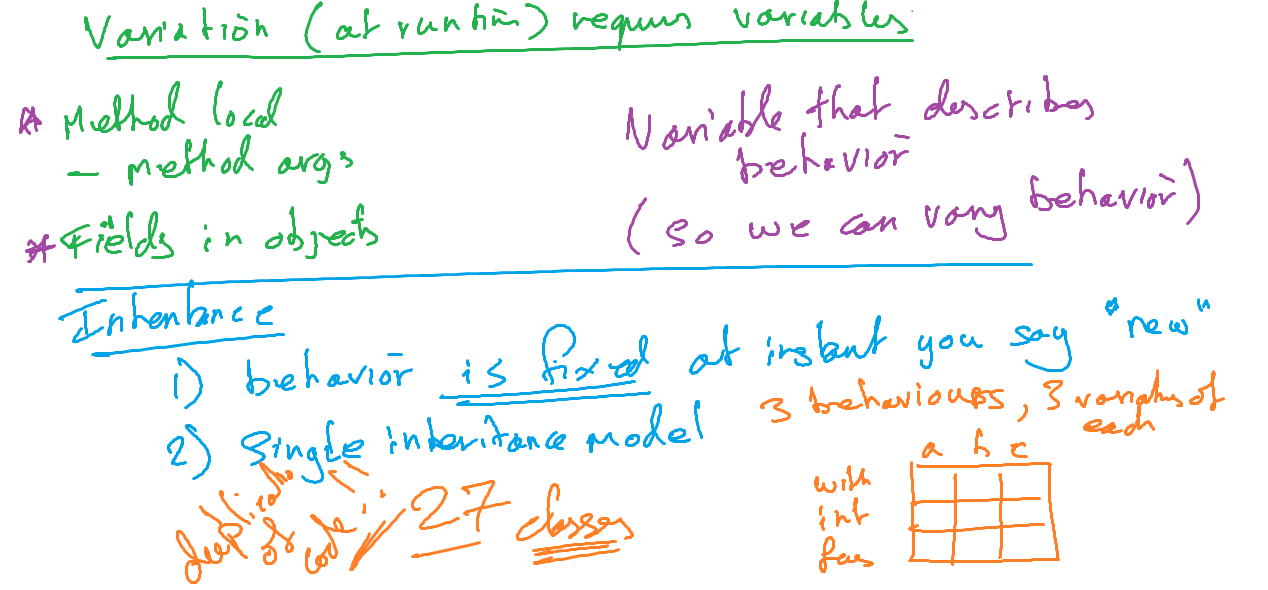 Variation (at runtim) requires variables
* Method local
- method args
* Fields in objects
Variable that describes
behavior
(so we can vary behavior)
Inheritance
1) behavior is fixed at instant you say "new"
2) Single inheritance model
3 behaviours, 3 variatns of
each
duplicatn
of code
27 classes
a b c
with
int